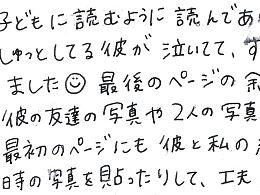 子どもに読むように読んであ
しゅっとしてる彼が泣いてて、す
ました☺ 最後のページの余
彼の友達の写真や2人の写真
最初のページにも彼と私の
時の写真を貼ったりして、工夫